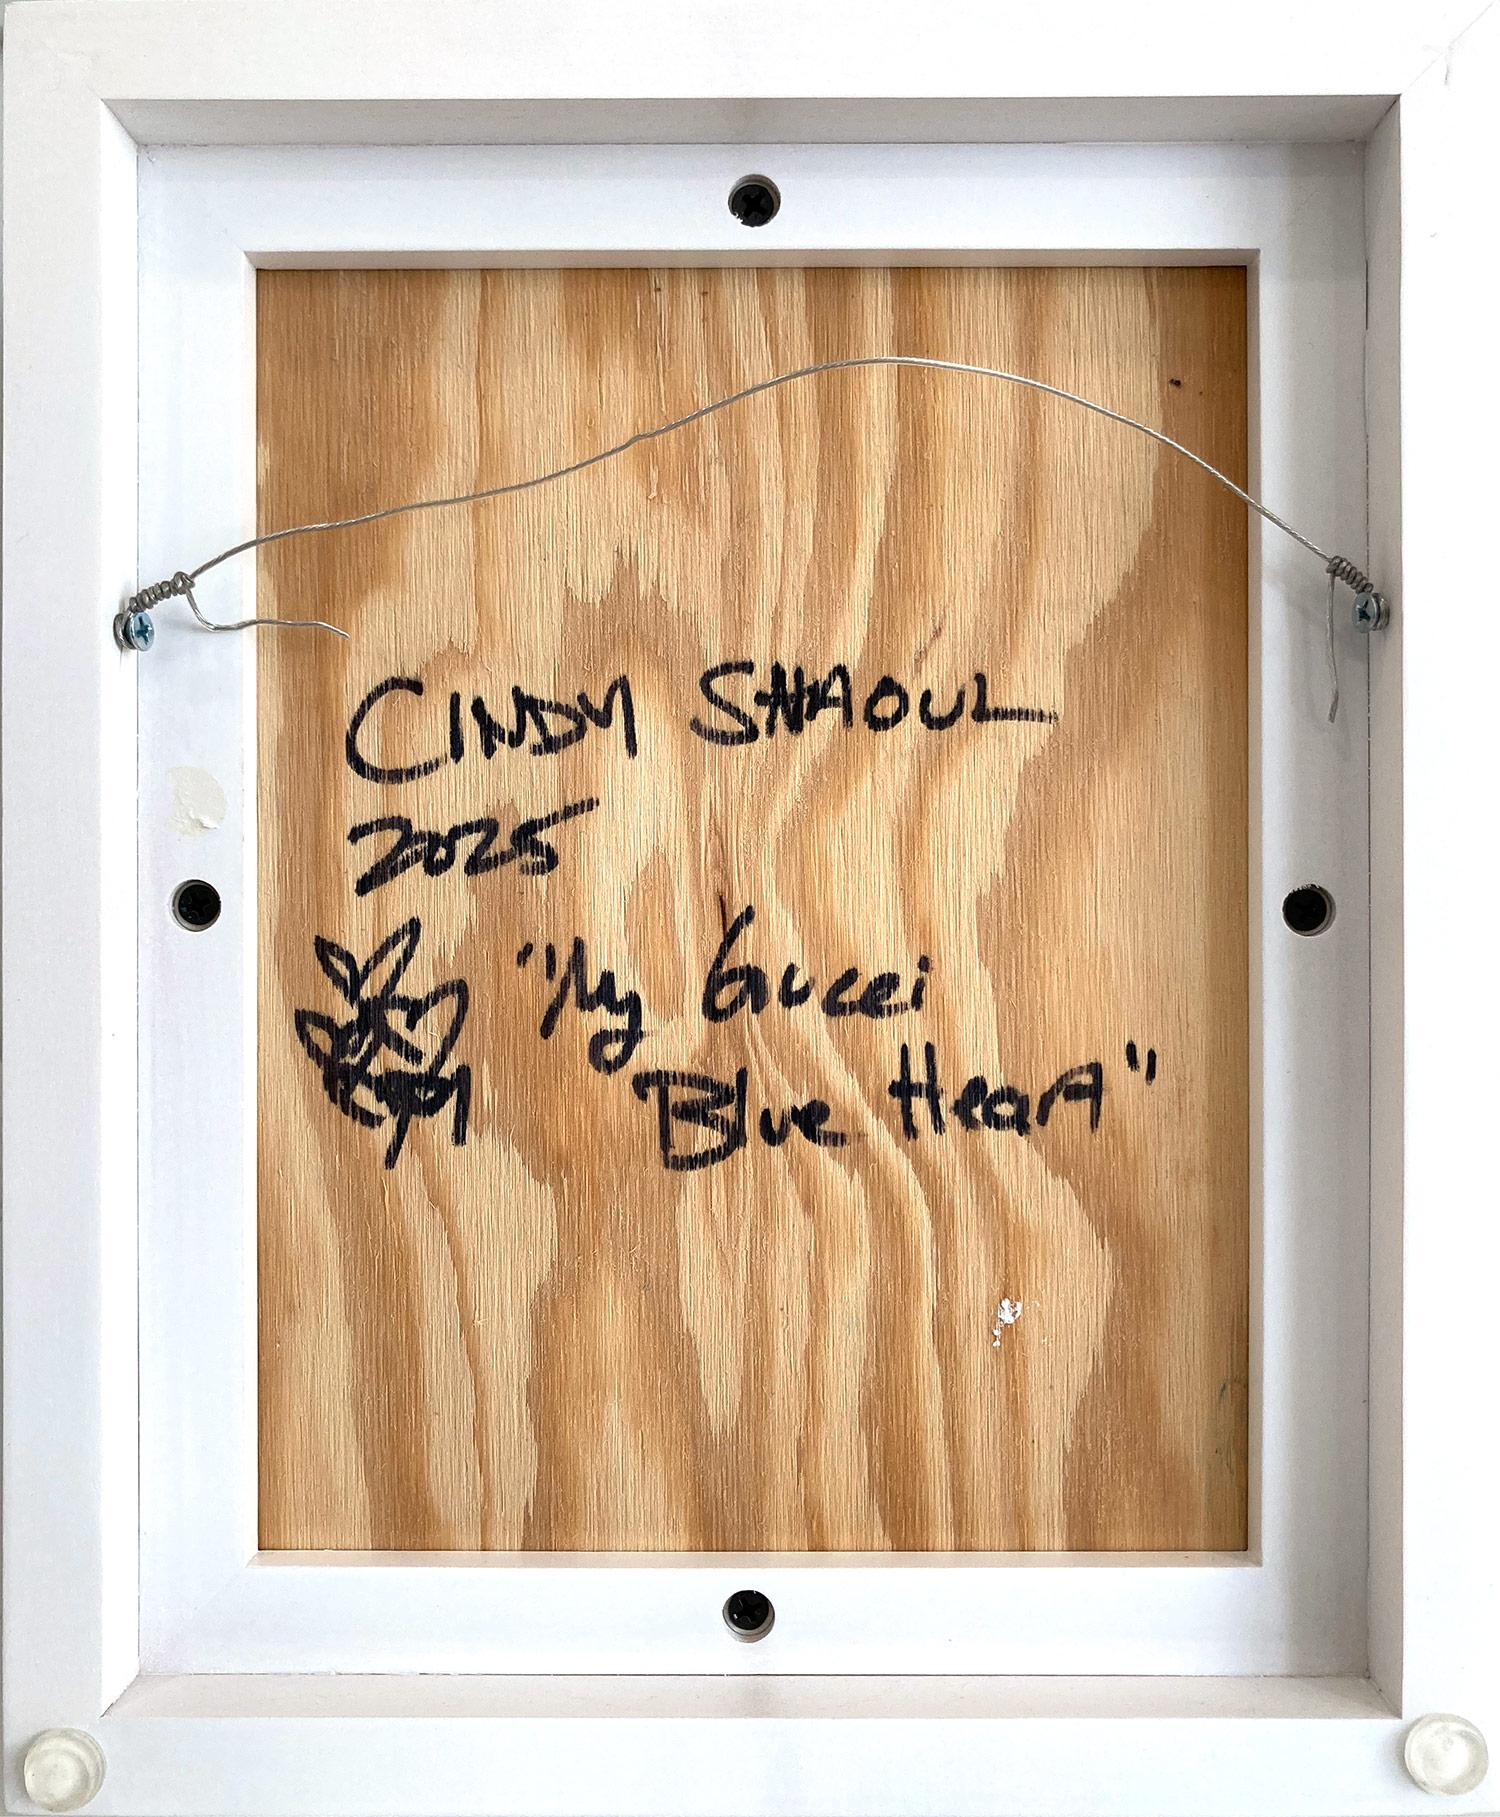 CINDY SHAOUL
2025
"My Gucci
Blue Heart"